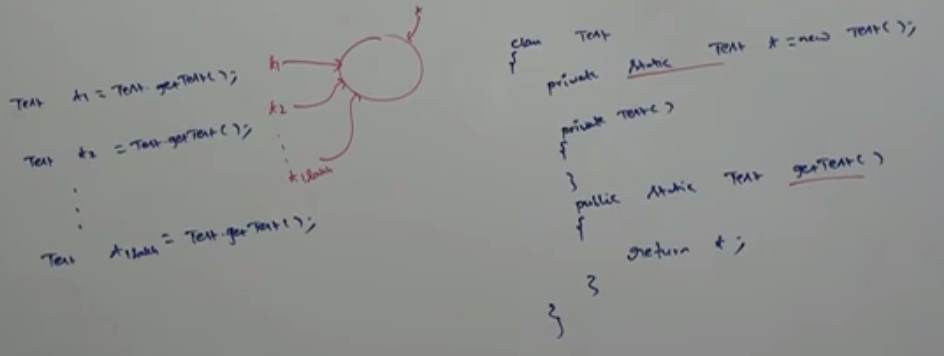 Test t1 = Test.getTest();
Test t2 = Test.getTest();
Test t1lakh = Test.getTest();
t
t1
t2
t1lakh
class Test
{
private static Test t = new Test();
private Test()
{
}
public static Test getTest()
{
return t;
}
}